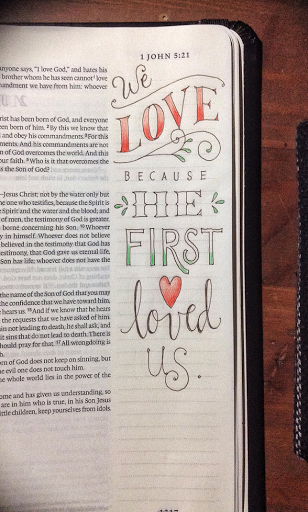 1 JOHN 5:21
anyone says, "I love God," and hates his
brother whom he has seen cannot love
mandment we have from him: whoever
rist has been born of God, and everyone
een born of him. 2 By this we know that
and obey his commandments. 3 For this
ments. And his commandments are not
n of God overcomes the world. And this
our faith. 5 Who is it that overcomes the
s the Son of God?
—Jesus Christ; not by the water only but
he one who testifies, because the Spirit is
e Spirit and the water and the blood; and
of men, the testimony of God is greater,
borne concerning his Son. 10 Whoever
y in himself. Whoever does not believe
believed in the testimony that God has
testimony, that God gave us eternal life,
Son has life; whoever does not have the
the name of the Son of God that you may
he confidence that we have toward him,
e hears us. 15 And if we know that he hears
the requests that we have asked of him.
in not leading to death, he shall ask, and
it sins that do not lead to death. There is
hould pray for that. 17 All wrongdoing is
h.
en of God does not keep on sinning, but
he evil one does not touch him.
he whole world lies in the power of the
ome and has given us understanding, so
are in him who is true, in his Son Jesus
ittle children, keep yourselves from idols.
We
LOVE
BECAUSE
HE
FIRST
loved
us.
1217